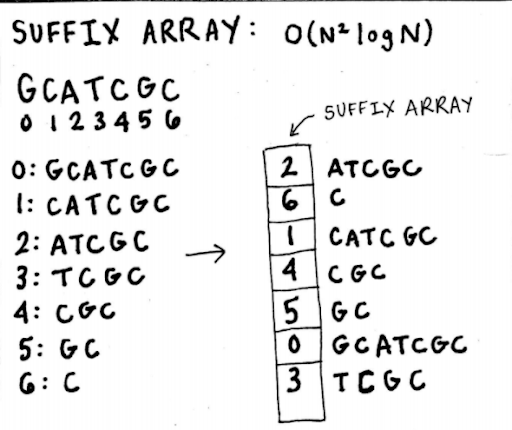 SUFFIX ARRAY: O(N² log N)
GCATCGC
0 1 2 3 4 5 6
0: GCATCGC
1: CATCGC
2: ATCGC
3: TCGC
4: CGC
5: GC
6: C
SUFFIX ARRAY
2 ATCGC
6 C
1 CATCGC
4 CGC
5 GC
0 GCATCGC
3 TCGC